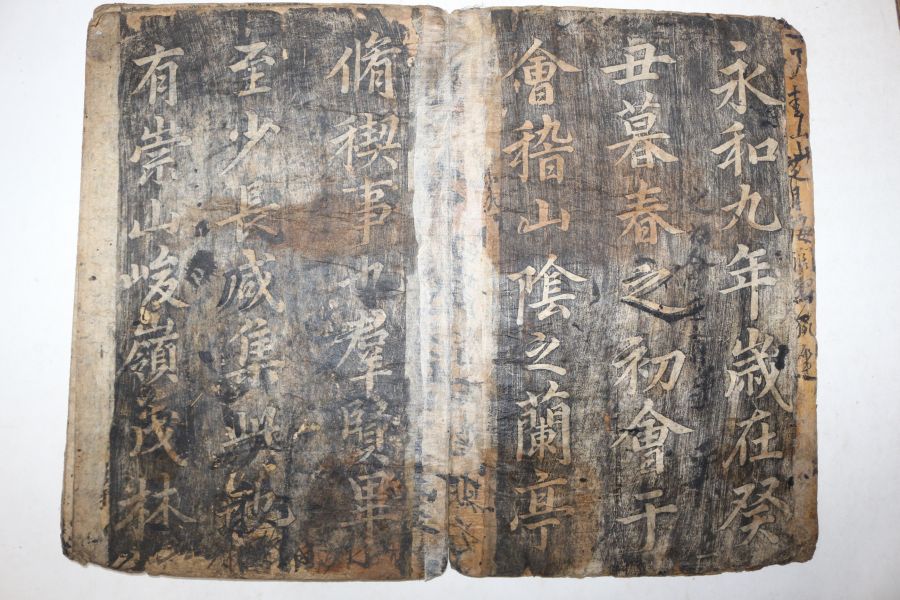 永和九年歲在癸
丑暮春之初會于
會稽山陰之蘭亭
脩禊事也羣賢畢
至少長咸集此地
有崇山峻嶺茂林